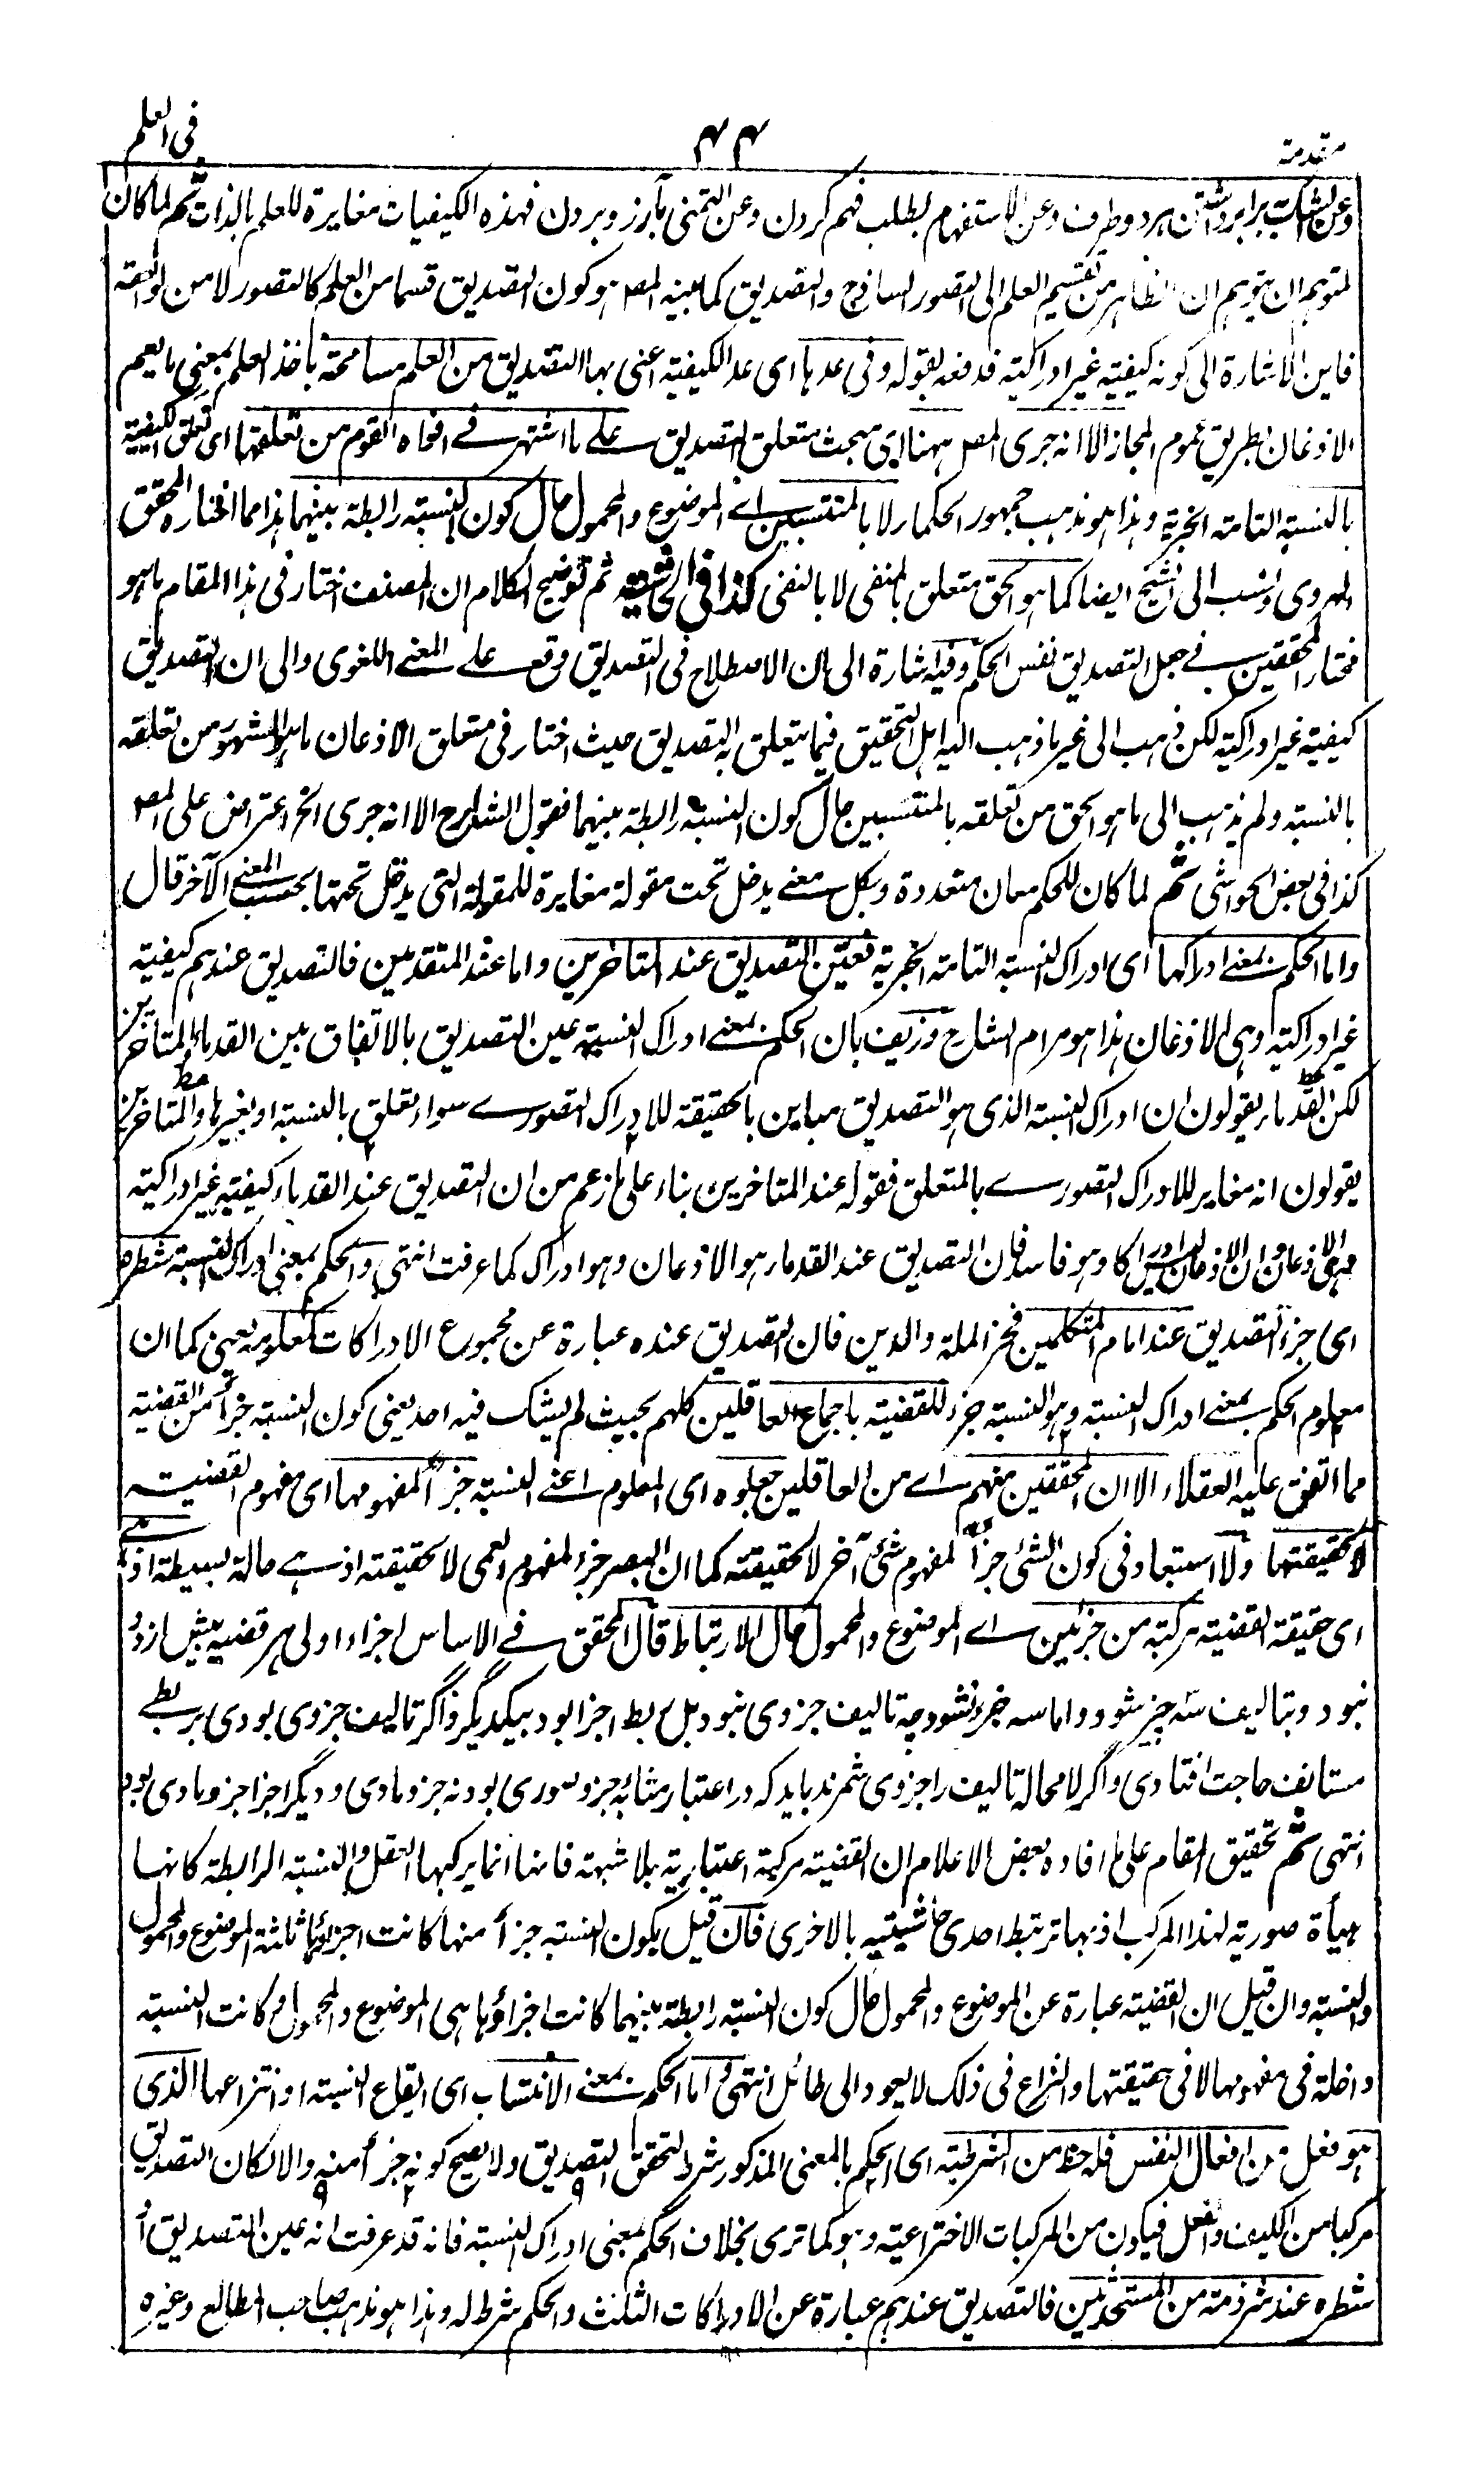 مقدمة ۴۴ فى العلم
وعن الشك برابر داشتن هر دو طرف وعن الاستفهام بطلب فهم كردن وعن التمنى بآرزو بردن فهذه الكيفيات مغايرة للعلم بالذات ثم لما كان
لمتوهم ان يتوهم ان الظاهر من تقسيم العلم الى التصور الساذج والتصديق كما بينه المصـ هو كون التصديق قسما من العلم كالتصور لا من لواحقه
فاين الاشارة الى كونه كيفية غير ادراكية فدفعه بقوله وفى عدها اى عد الكيفية اعنى بها التصديق من العلم مسامحة باخذ العلم بمعنى ما يعم
الاذعان بطريق عموم المجاز الا انه جرى المصـ ههنا اى مبحث متعلق التصديق على ما اشتهر فى افواه القوم من تعلقها اى تعلق الكيفية
بالنسبة التامة الخبرية وهذا هو مذهب جمهور الحكماء لا بالمنتسبين اى الموضوع والمحمول حال كون النسبة رابطة بينهما هذا مما اختاره المحقق
الهروى ونسب الى الشيخ ايضا كما هو الحق متعلق بالمنفى لا بالنفى كذا فى الحاشية ثم توضيح الكلام ان المصنف اختار فى هذا المقام ما هو
مختار المحققين فى جعل التصديق نفس الحكم وفيه اشارة الى ان الاصطلاح فى التصديق وقع على المعنى اللغوى والى ان التصديق
كيفية غير ادراكية لكن ذهب الى غير ما ذهب اليه اهل التحقيق فيما يتعلق به التصديق حيث اختار فى متعلق الاذعان ما هو المشهور من تعلقه
بالنسبة ولم يذهب الى ما هو الحق من تعلقه بالمنتسبين حال كون النسبة رابطة بينهما فقول الشارح الا انه جرى الخ اعتراض على المصـ
كذا فى بعض الحواشى ثم لما كان للحكم معان متعددة وبكل معنى يدخل تحت مقولة مغايرة للمقولة التى يدخل تحتها بحسب المعنى الآخر قال
واما الحكم بمعنى ادراكها اى ادراك النسبة التامة الخبرية فعين التصديق عند المتاخرين واما عند المتقدمين فالتصديق عندهم كيفية
غير ادراكية وهى الاذعان هذا هو مرام الشارح وزيف بان الحكم بمعنى ادراك النسبة عين التصديق بالاتفاق بين القدماء والمتاخرين
لكن القدماء يقولون ان ادراك النسبة الذى هو التصديق مباين بالحقيقة للادراك التصورى سواء تعلق بالنسبة او بغيرها والمتاخرين
يقولون انه مغاير للادراك التصورى بالمتعلق فقوله عند المتاخرين بناء على ما زعم من ان التصديق عند القدماء كيفية غير ادراكية
هى الاذعان وان الاذعان ليس ادراكا وهو فاسد فان التصديق عند القدماء هو الاذعان وهو ادراك كما عرفت انتهى والحكم بمعنى ادراك النسبة شطره
اى جزء التصديق عند امام المتكلمين فخر الملة والدين فان التصديق عنده عبارة عن مجموع الادراكات كمعلومه يعنى كما ان
معلوم الحكم بمعنى ادراك النسبة وهو النسبة جزء للقضية باجماع العاقلين كلهم بحيث لم يشك فيه احد يعنى كون النسبة جزأ من القضية
مما اتفق عليه العقلاء الا ان المحققين منهم اى من العاقلين جعلوه اى المعلوم اعنى النسبة جزأ لمفهومها اى مفهوم القضية
لا لحقيقتها ولا استبعاد فى كون الشئ جزأ لمفهوم شئ آخر لا لحقيقته كما ان البصر جزء لمفهوم العمى لا لحقيقته اذ هى حالة بسيطة اذ هى
اى حقيقة القضية مركبة من جزئين اى الموضوع والمحمول حال الارتباط قال المحقق فى الاساس اجزاء اولى هر قضيه بيش از دو
نبود وبتاليف سه چيز شود واما سه جزو نشود چه تاليف جزوى نبود بل ربط اجزا بود بيكديگر واگر تاليف جزوى بودى بربطى
مستانف حاجت افتادى واگر لا محالة تاليف را جزوى شمرند بايد كه در اعتبار بمثابه جزو صورى بود نه جزو مادى وديگر اجزا جزو مادى بود
انتهى ثم تحقيق المقام على ما افاده بعض الاعلام ان القضية مركبة اعتبارية بلا شبهة فانها انما يركبها العقل والنسبة الرابطة كانها
هيأة صورية لهذا المركب اذ بها ترتبط احدى حاشيتيه بالاخرى فان قيل يكون النسبة جزأ منها كانت اجزاؤها ثلثة الموضوع والمحمول
والنسبة وان قيل ان القضية عبارة عن الموضوع والمحمول حال كون النسبة رابطة بينهما كانت اجزاؤها هى الموضوع والمحمول وكانت النسبة
داخلة فى مفهومها لا فى حقيقتها والنزاع فى ذلك لا يعود الى طائل انتهى واما الحكم بمعنى الانتساب اى ايقاع النسبة او انتزاعها الذى
هو فعل من افعال النفس فله حظ من الشرطية اى الحكم بالمعنى المذكور شرط لتحقق التصديق ولا يصح كونه جزأ منه والا لكان التصديق
مركبا من الكيف والفعل فيكون من المركبات الاختراعية وهو كما ترى بخلاف الحكم بمعنى ادراك النسبة فانه قد عرفت انه عين التصديق أو
شطره عند شرذمة من المستحدثين فالتصديق عندهم عبارة عن الادراكات الثلث والحكم شرط له وهذا هو مذهب صاحب المطالع وغيره